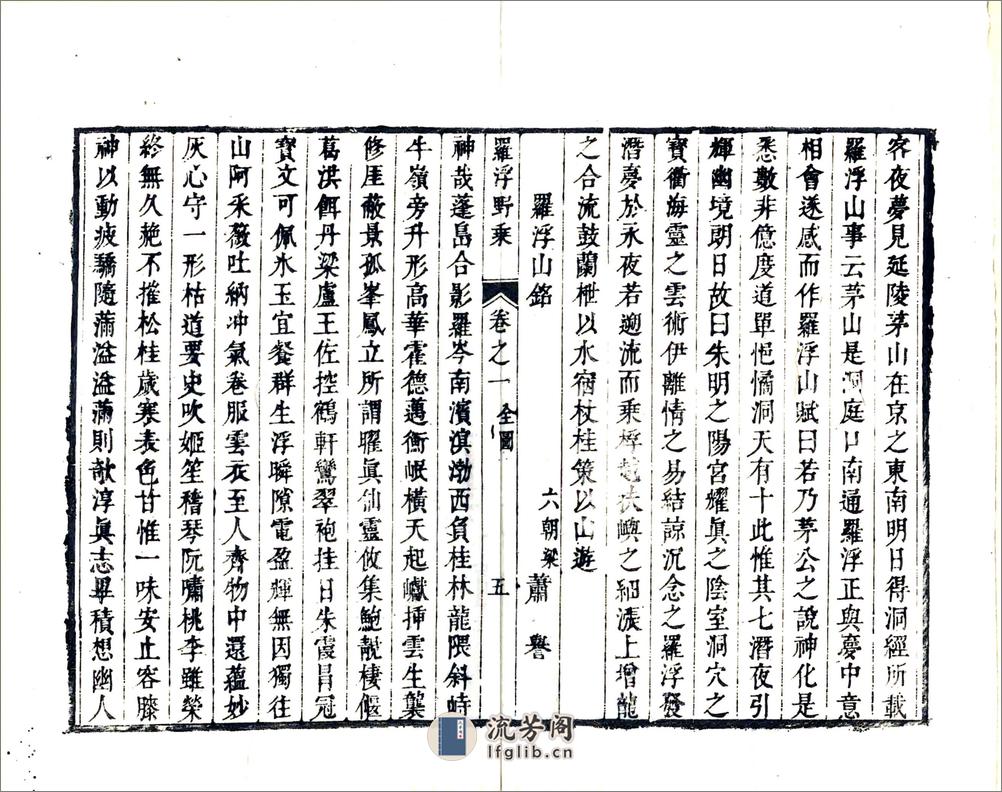 客夜夢見延陵茅山在京之東南明日得洞經所載
羅浮山事云茅山是洞庭口南通羅浮正與夢中意
相會遂感而作羅浮山賦曰若乃茅公之說神化是
悉數非億度道單悒憰洞天有十此惟其七潛夜引
輝幽境朗日故曰朱明之陽宮耀眞之陰室洞穴之
寶衢海靈之雲術伊離情之易結諒沉念之羅浮發
潛夢於永夜若遡流而乘桴越扶嶼之細漲上增龍
之合流鼓蘭枻以水宿杖桂策以山遊
羅浮山銘
六朝梁 蕭 詧
羅浮野乘 卷之一 全圖 五
神哉蓬島合影羅岑南濱滇渤西負桂林龍隈斜峙
牛嶺旁升形高華霍德邁衡岷橫天起巘揷雲生龔
修厓蔽景孤峯鳳立所謂曜眞仙靈攸集鮑靚棲偃
葛洪餌丹梁盧王佐控鶴軒鸞翠袍挂日朱霞昌冠
寶文可佩氷玉宜餐群生浮瞬隙電盈輝無因獨往
山阿采薇吐納冲氣卷服雲衣至人齊物中還蘊妙
灰心守一形枯道要史吹姬笙嵇琴阮嘯桃李雖榮
終無久艷不摧松桂歲寒表色甘惟一味安止容膝
神以動疲驕隨滿溢溢滿則欹淳眞志畢積想幽人
流芳阁
lfglib.cn